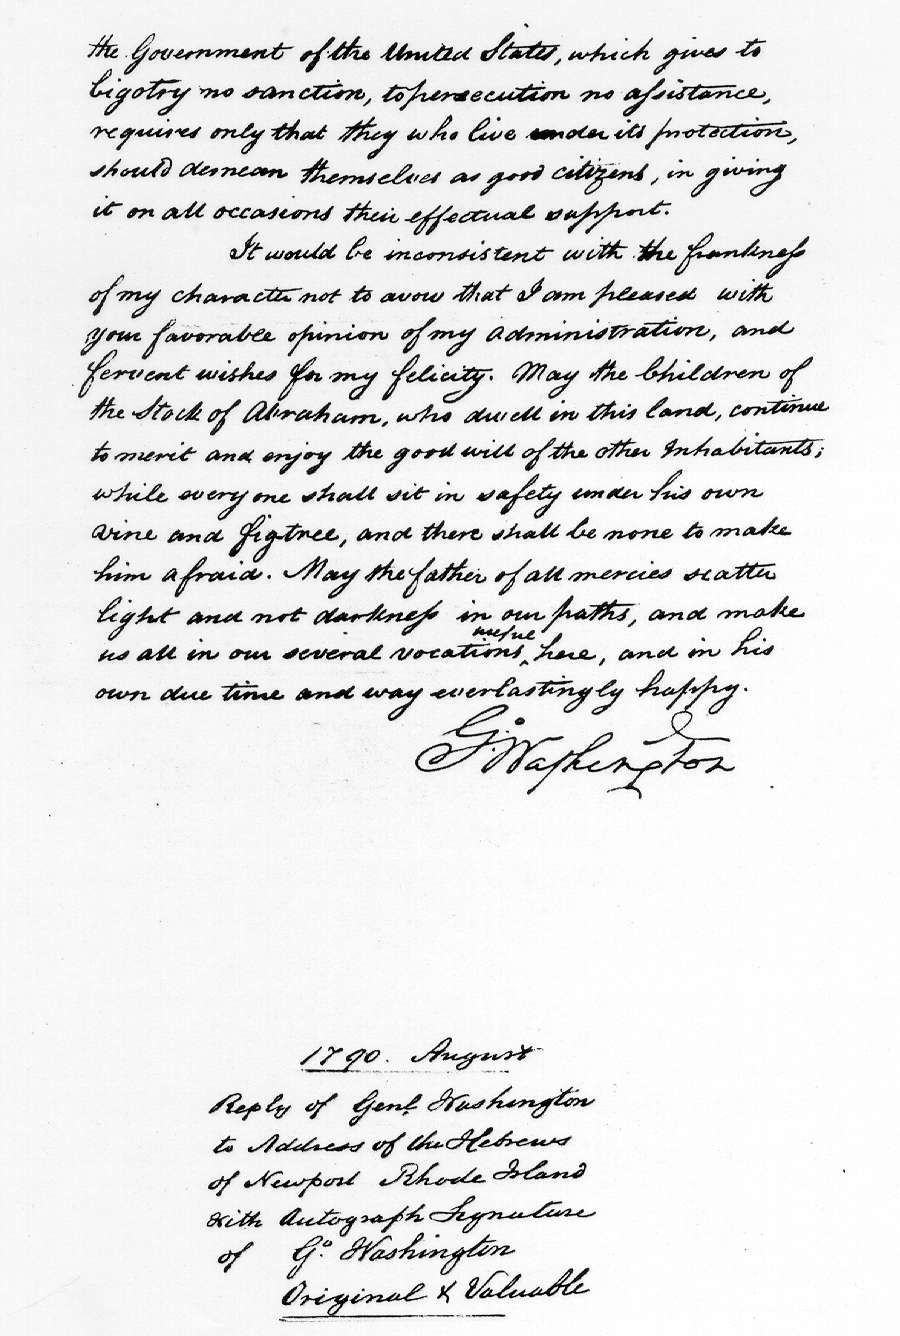 the Government of the United States, which gives to
bigotry no sanction, to persecution no assistance,
requires only that they who live under its protection,
should demean themselves as good citizens, in giving
it on all occasions their effectual support.
It would be inconsistent with the frankness
of my character not to avow that I am pleased with
your favorable opinion of my administration, and
fervent wishes for my felicity. May the Children of
the Stock of Abraham, who dwell in this land, continue
to merit and enjoy the good will of the other Inhabitants;
while every one shall sit in safety under his own
vine and figtree, and there shall be none to make
him afraid. May the father of all mercies scatter
light and not darkness in our paths, and make
useful
us all in our several vocations ‸ here, and in his
own due time and way everlastingly happy.
Go. Washington
1790. August
Reply of Genl. Washington
to Address of the Hebrews
of Newport Rhode Island
with Autograph Signature
of Go. Washington
Original & Valuable